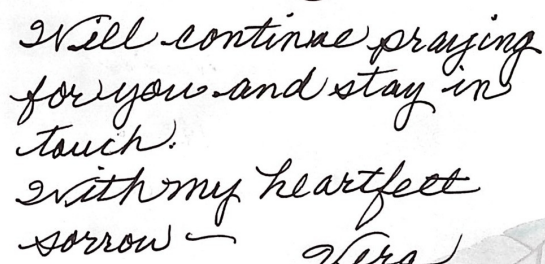 Will continue praying
for you and stay in
touch.
With my heartfelt
sorrow —
Vera